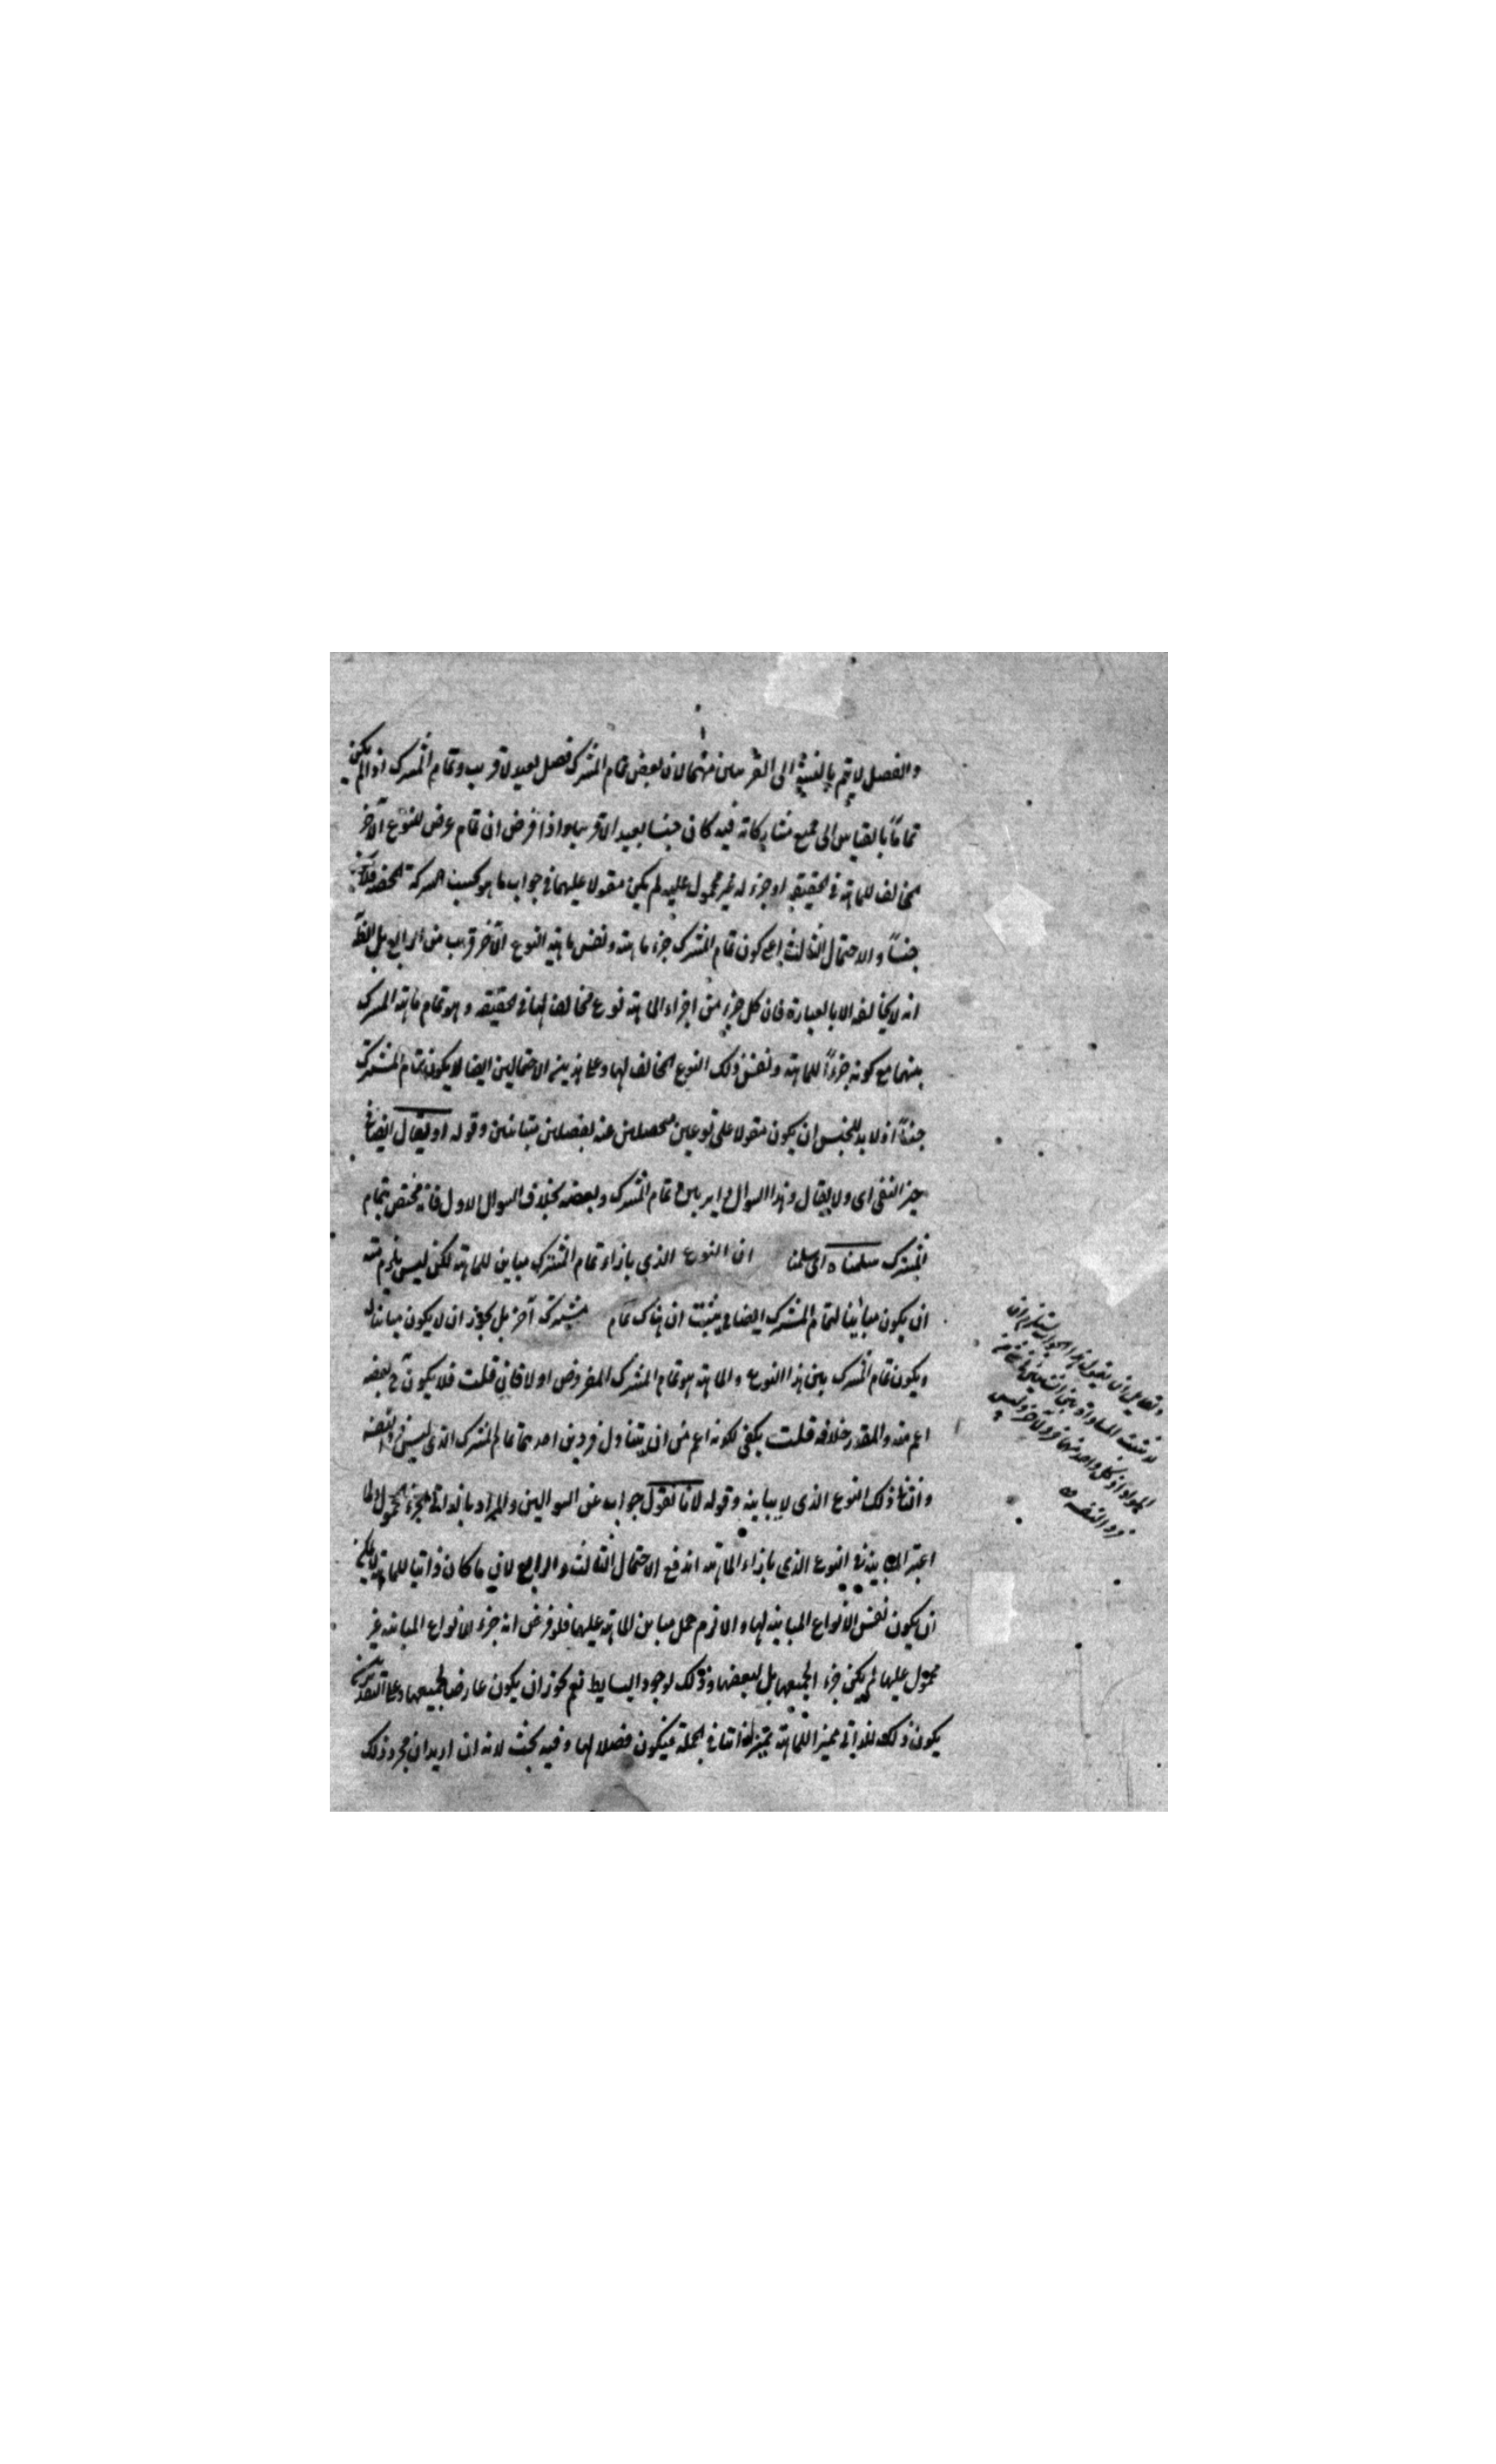 والفصل لا يتم بالنسبة الى القريبين منهما لان بعض تمام المشترك فصل بعيد لا قريب وتمام المشترك اذا لم يكن
تماما بالقياس الى جميع مشاركاته فيه كان جنسا بعيدا لا قريبا واذا فرض ان تمام عرض للنوع الآخر
المخالف للماهية في الحقيقة او جزء له غير محمول عليه لم يكن مقولا عليهما في جواب ما هو بحسب الشركة المحضة فلا يكون
جنسا والاحتمال الثالث اعني كون تمام المشترك جزء ماهية ونفس ماهية النوع الآخر قريب من الرابع بل الظ
انه لا يخالفه الا بالعبارة فان كل جزء من اجزاء الماهية نوع مخالف لها في الحقيقة وهو تمام ماهية المشترك
بينهما مع كونه جزءا للماهية ونفس ذلك النوع المخالف لها وعلى هذين الاحتمالين ايضا لا يكون تمام المشترك
جنسا اذ لا بد للجنس ان يكون مقولا على نوعين محصلين عنه بفصلين متباينين وقوله او يقال ايضا في
حيز النفي اى ولا يقال وهذا السوال داير بين تمام المشترك وبعضه بخلاف السوال الاول فانه مختص بتمام
المشترك سلمناه اى سلمنا ان النوع الذي بازاء تمام المشترك مباين للماهية لكن ليس يلزم منه
ان يكون مباينا لتمام المشترك ايضا حتى يثبت ان هناك تمام مشترك آخر بل يجوز ان لا يكون مباينا له
ويكون تمام المشترك بين هذا النوع والماهية هو تمام المشترك المفروض اولا فان قلت فلا يكون ح بعضه
اعم منه والمقدر خلافه قلت يكفي لكونه اعم من ان يتناول فردين احدهما تمام المشترك الذى ليس فردا لنفسه
والثاني ذلك النوع الذى لا يباينه وقوله لانا نقول جواب عن السوالين والمراد بالذاتي الجزء المحمول ولما
اعتبر المباينة في النوع الذي بازاء الماهية اندفع الاحتمال الثالث والرابع لان ما كان ذاتيا للماهية لا يمكن
ان يكون نفس الانواع المباينة لها والا لزم حمل مباين الماهية عليها فلو فرض انه جزء الانواع المباينة غير
محمول عليها لم يكن جزء الجميعها بل لبعضها وذلك لوجود البسايط نعم يجوز ان يكون عارضا لجميعها وعلى التقديرين
يكون ذلك الذاتي مميزا للماهية تمييزا ذاتيا في الجملة فيكون فصلا لها وفيه بحث لانه ان اريد ان مجرد ذلك